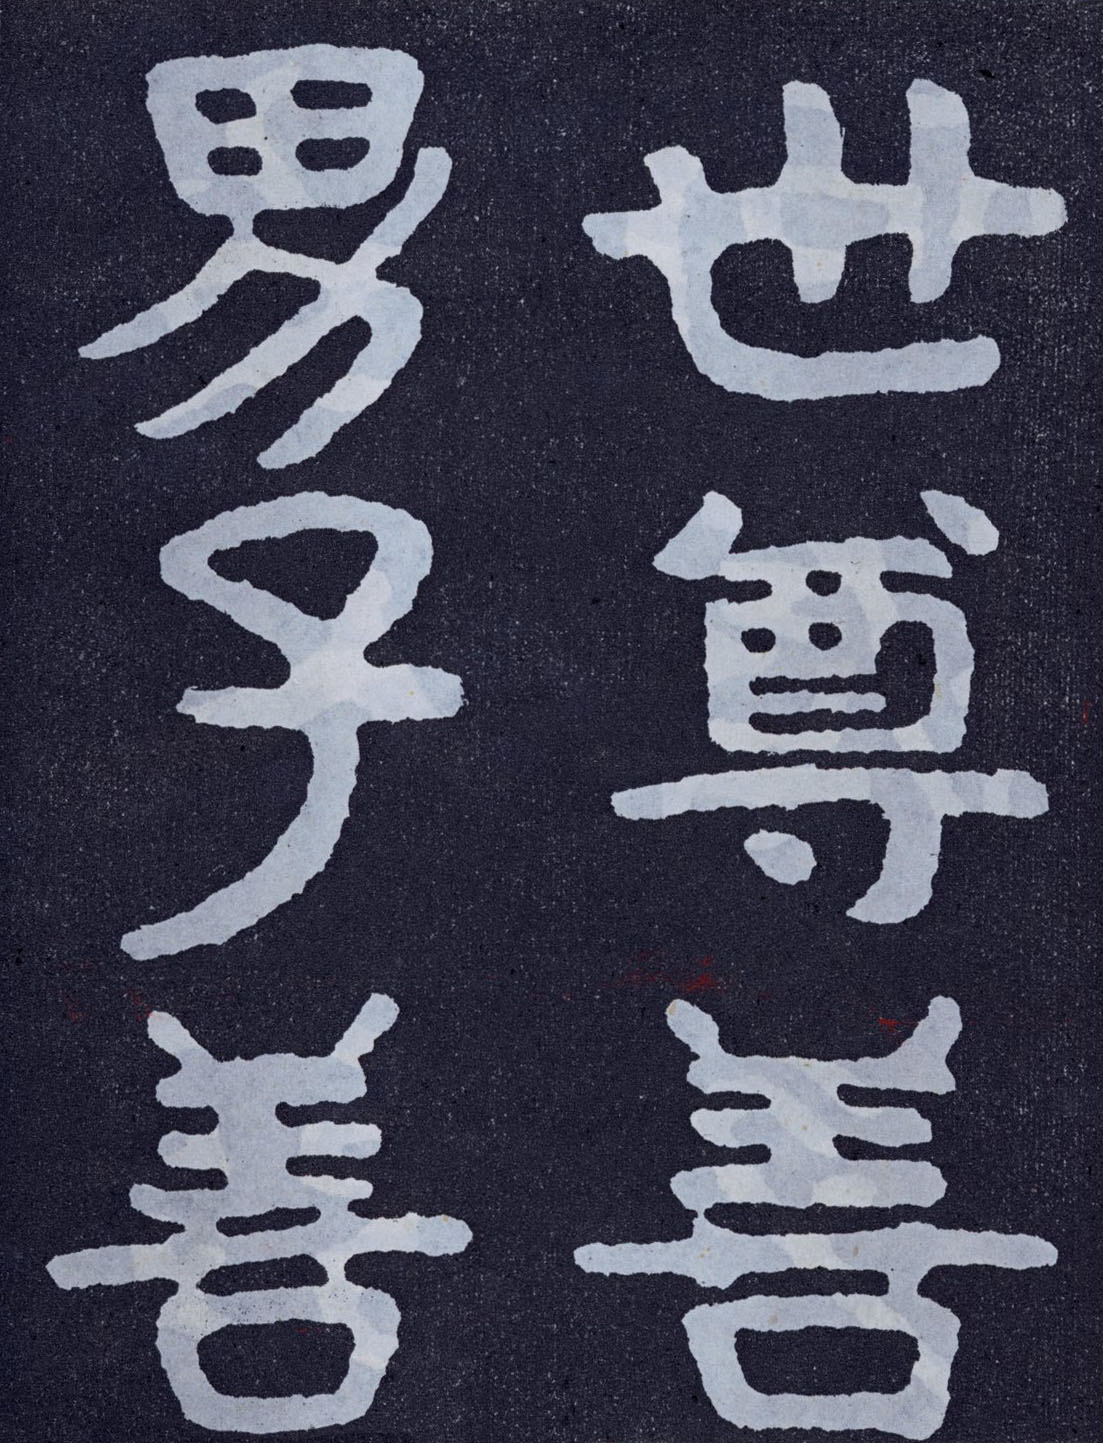 世尊善
男子善